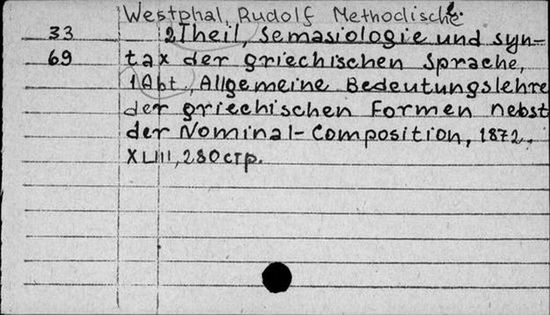 Westphal, Rudolf Methodische
33 2 Theil, Semasiologie und syn-
69 tax der griechischen Sprache,
1 Abt, Allgemeine Bedeutungslehre
der griechischen Formen nebst
der Nominal-Composition, 1872.
XLIII, 280 стр.